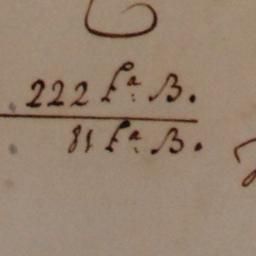 222 fª B.
81 fª B.